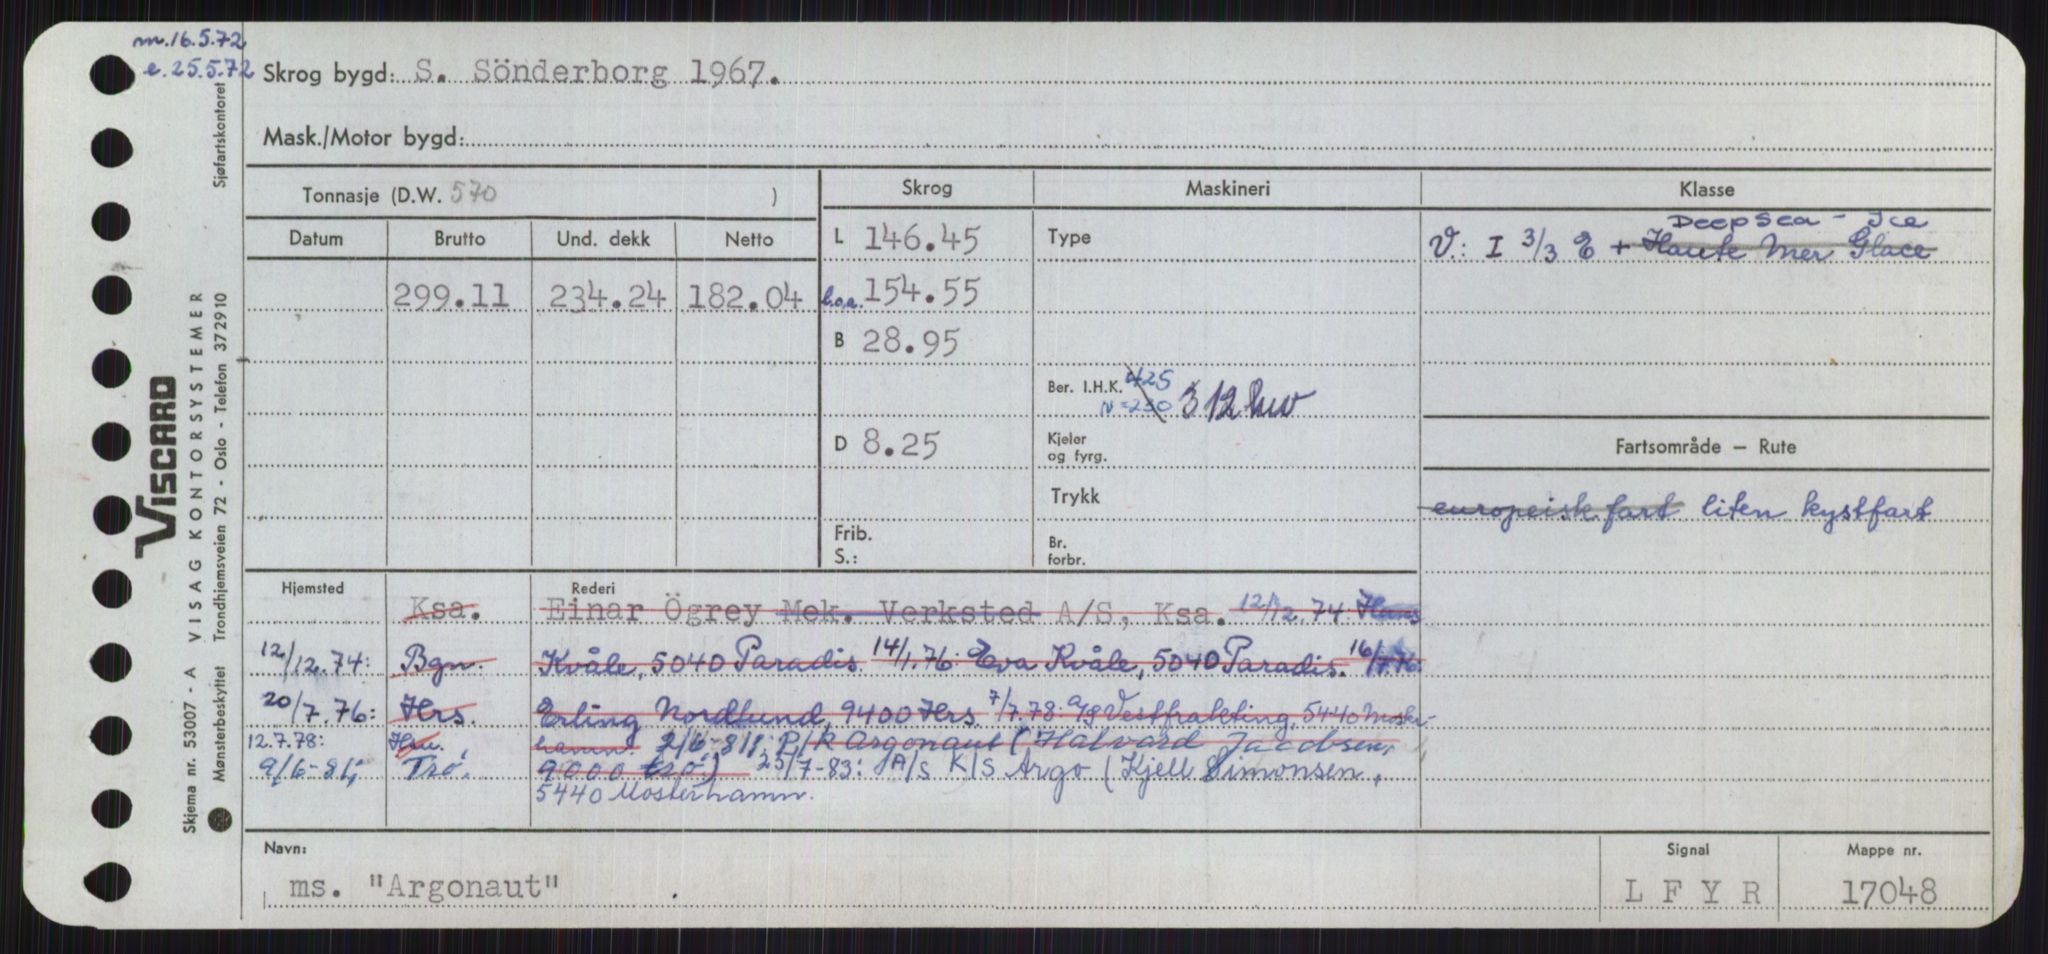 m.16.5.72
e.25.5.72
Skrog bygd: S. Sönderborg 1967.
Mask./Motor bygd:
Tonnasje (D.W. 570 )
Skrog
Maskineri
Klasse
Datum Brutto Und. dekk Netto
299.11 234.24 182.04
L 146.45
l.o.a. 154.55
B 28.95
D 8.25
Frib.
S.:
Type
Ber. I.H.K. 425
N=230 312 kw
Kjeler
og fyrg.
Trykk
Br.
forbr.
Deepsea - Ice
V.: I 3/3 E + Haute Mer Glace
Fartsområde – Rute
europeisk fart liten kystfart
Hjemsted Rederi
Ksa. Einar Ögrey Mek. Verksted A/S, Ksa. 12/12.74 Hans
12/12.74: Bgn. Kvåle, 5040 Paradis. 14/1.76: Eva Kvåle, 5040 Paradis. 16/7.76:
20/7.76: Hrs. Erling Nordlund, 9400 Hrs. 7/7.78: A/S Vestfrakting, 5440 Moster-
12.7.78: Hm. hamn. 2/6-81: P/R Argonaut (Halvard Jacobsen,
9/6-81: Trö. 9000 trö.) 25/7-83: A/S K/S Argo (Kjell Simonsen,
5440 Mosterhamn.
Navn:
ms. "Argonaut"
Signal
L F Y R
Mappe nr.
17048
Sjøfartskontoret
VISCARD
VISAG KONTORSYSTEMER
Trondhjemsveien 72 - Oslo - Telefon 372910
Skjema nr. 53007 - A
Mønsterbeskyttet